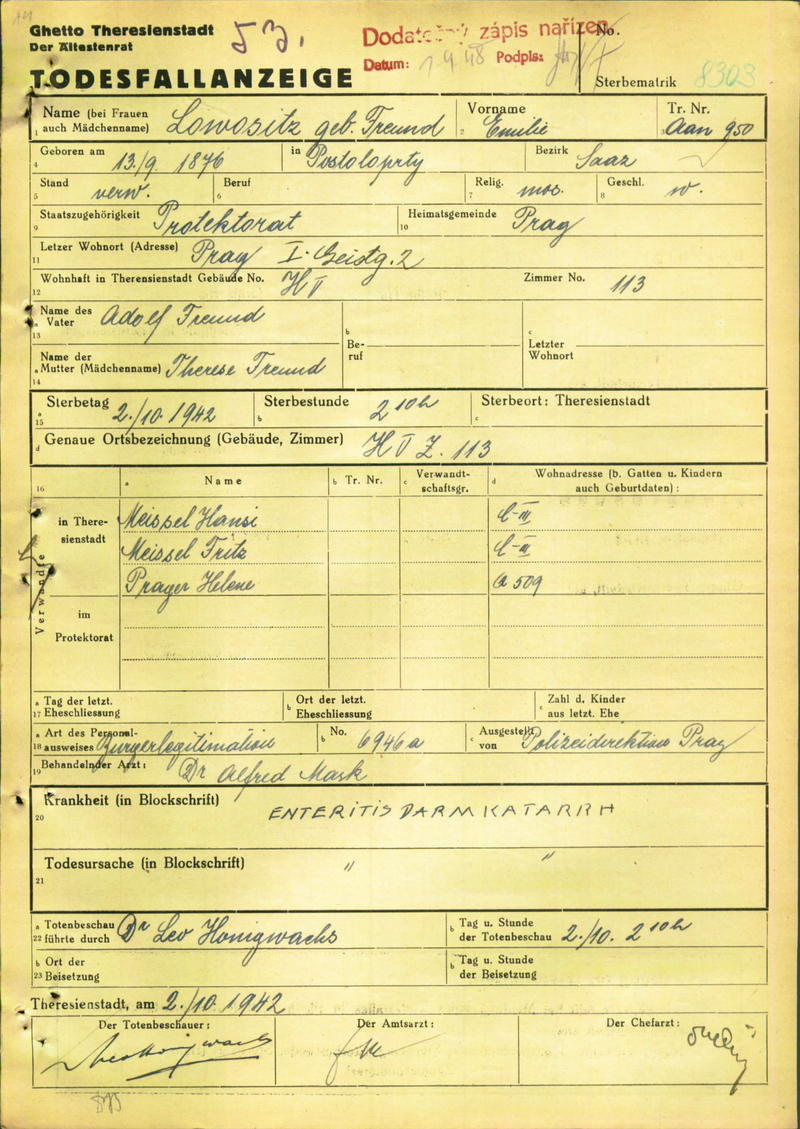 Ghetto Theresienstadt
Der Ältestenrat
TODESFALLANZEIGE
Dodatečný zápis nařízen
Datum: 1 9 48 Podpis:
No.
Sterbematrik 8303
Name (bei Frauen auch Mädchenname) Lowositz geb. Freund
1
Vorname Emilie
2
Tr. Nr. Aan 950
3
Geboren am 13./9. 1876
4
in Postoloprty
Bezirk Saaz
Stand verw.
5
Beruf
6
Relig. mos.
7
Geschl. w.
8
Staatszugehörigkeit Protektorat
9
Heimatsgemeinde Prag
10
Letzer Wohnort (Adresse) Prag I. Geistg. 2
11
Wohnhaft in Therensienstadt Gebäude No. H V
12
Zimmer No. 113
Name des Vater Adolf Freund
a
13
b Beruf
c Letzter Wohnort
Name der Mutter (Mädchenname) Therese Freund
a
14
Sterbetag 2./10. 1942
a
15
Sterbestunde 2 10 h
b
Sterbeort: Theresienstadt
c
d Genaue Ortsbezeichnung (Gebäude, Zimmer) H V Z. 113
16
a Name
b Tr. Nr.
c Verwandtschaftsgr.
d Wohnadresse (b. Gatten u. Kindern auch Geburtdaten):
Verwandte
in Theresienstadt
Meissel Hansi C-III
Meissel Fritz C-III
Prager Helene Q 509
im Protektorat
a Tag der letzt.
17 Eheschliessung
b Ort der letzt. Eheschliessung
c Zahl d. Kinder aus letzt. Ehe
a Art des Personal-
18 ausweises Bürgerlegitimation
b No. 6946a
c Ausgestellt von Polizeidirektion Prag
19 Behandelnder Arzt: Dr Alfred Mask
Krankheit (in Blockschrift) ENTERITIS DARMKATARRH
20
Todesursache (in Blockschrift) " "
21
a Totenbeschau
22 führte durch Dr Leo Honigwachs
b Tag u. Stunde der Totenbeschau 2./10. 2 10 h
b Ort der
23 Beisetzung
b Tag u. Stunde der Beisetzung
Theresienstadt, am 2./10. 1942
Der Totenbeschauer:
Der Amtsarzt:
Der Chefarzt: